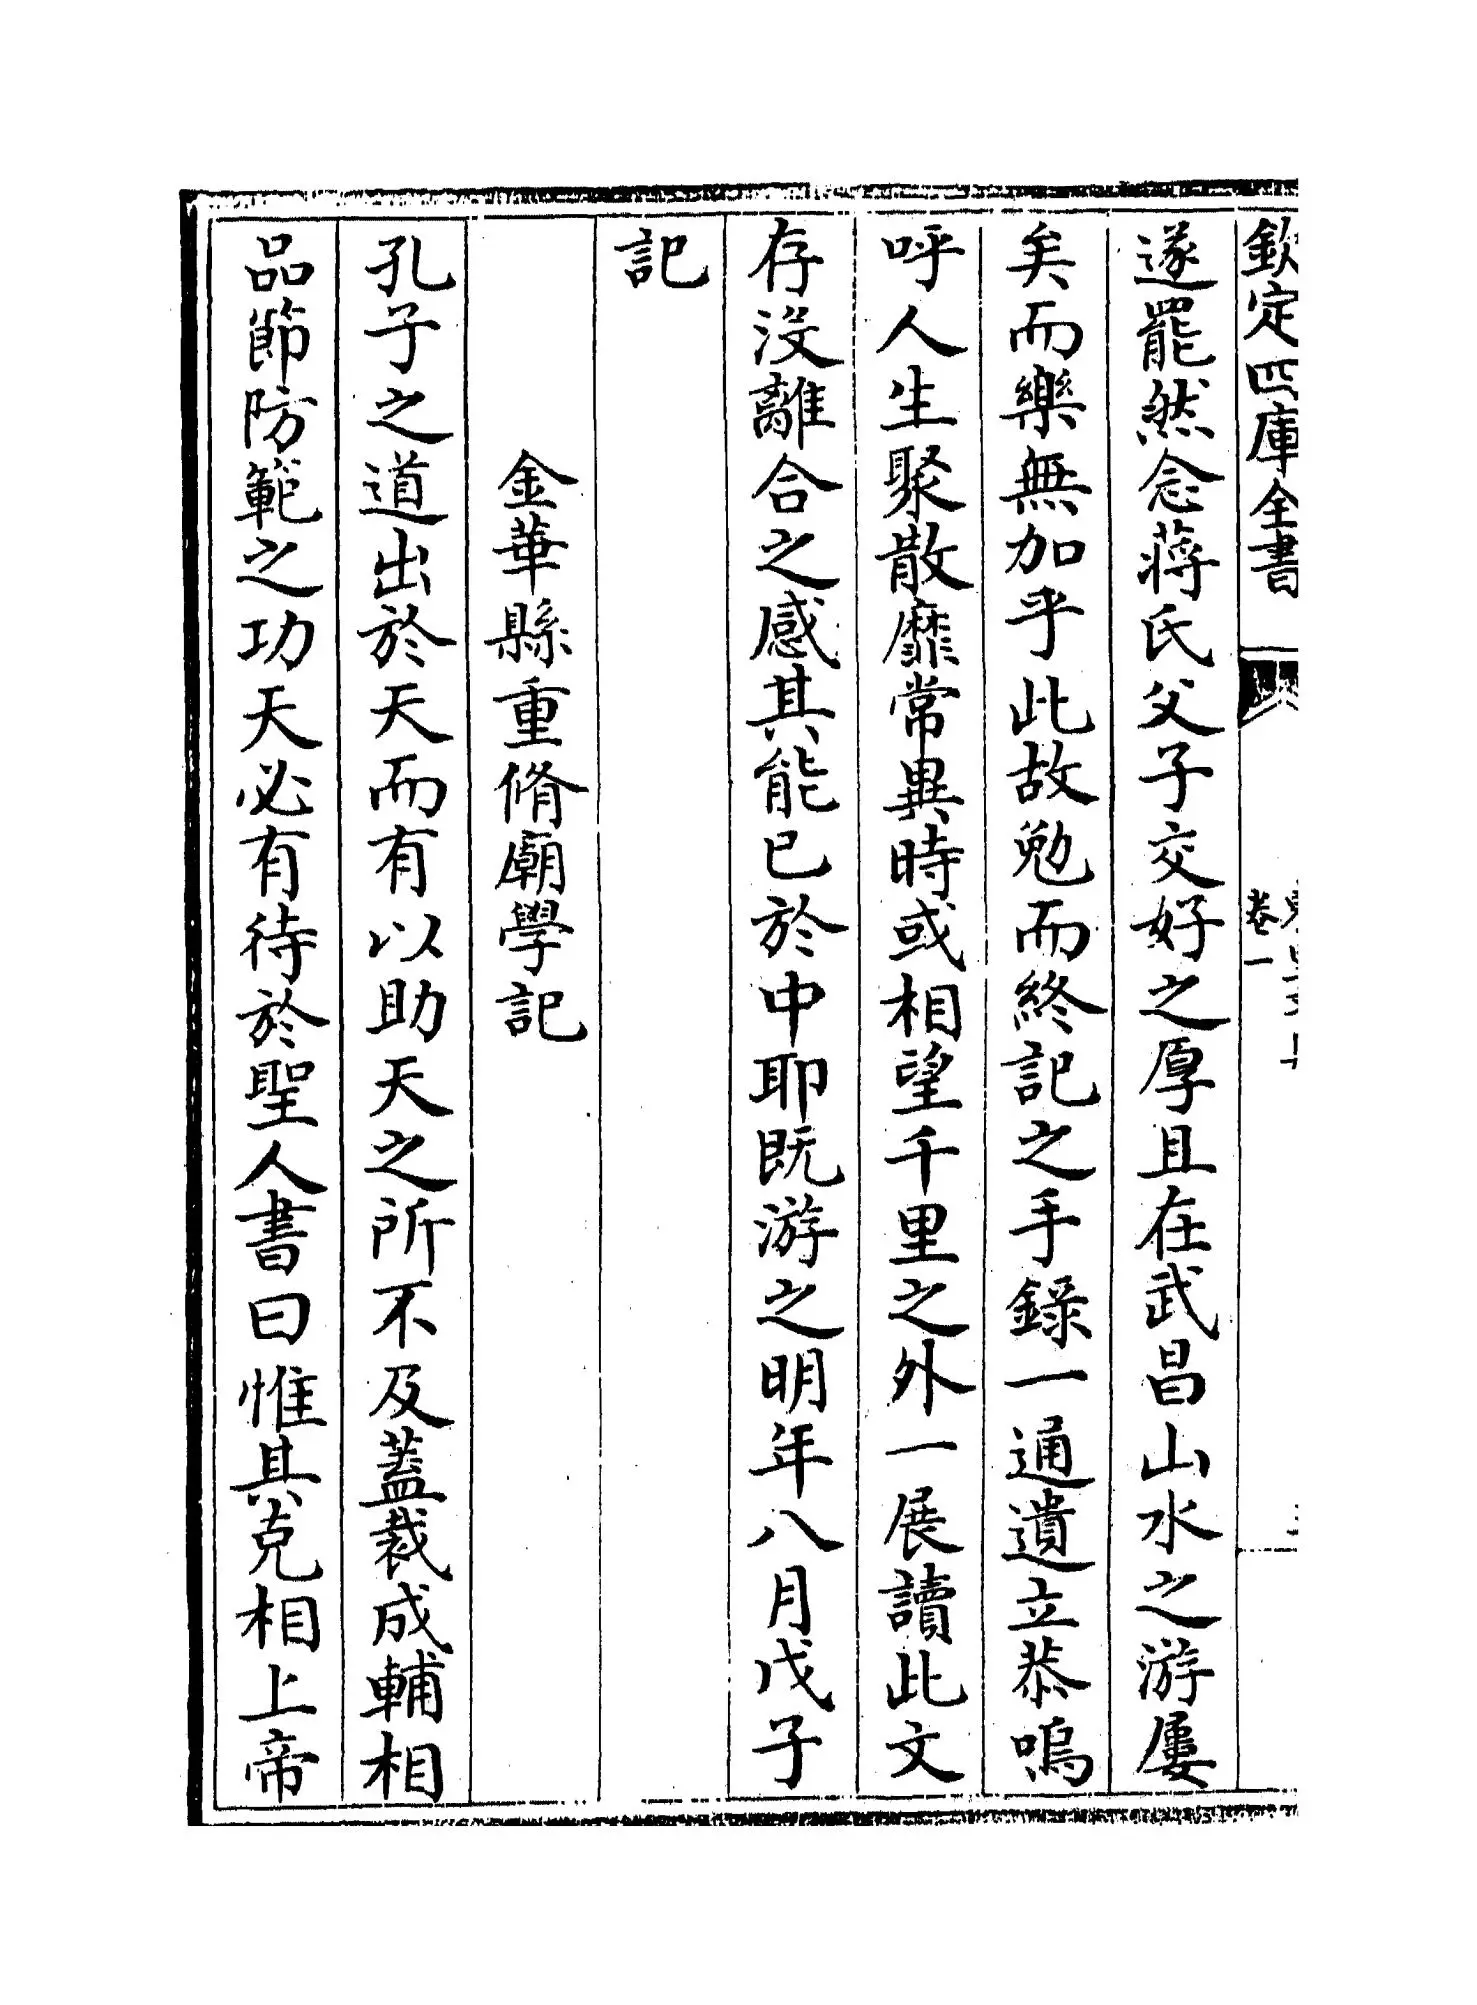 欽定四庫全書
卷一
遂罷然念蔣氏父子交好之厚且在武昌山水之游屢
矣而樂無加乎此故勉而終記之手錄一通遺立恭嗚
呼人生聚散靡常異時或相望千里之外一展讀此文
存沒離合之感其能已於中耶既游之明年八月戊子
記
金華縣重脩廟學記
孔子之道出於天而有以助天之所不及蓋裁成輔相
品節防範之功天必有待於聖人書曰惟其克相上帝